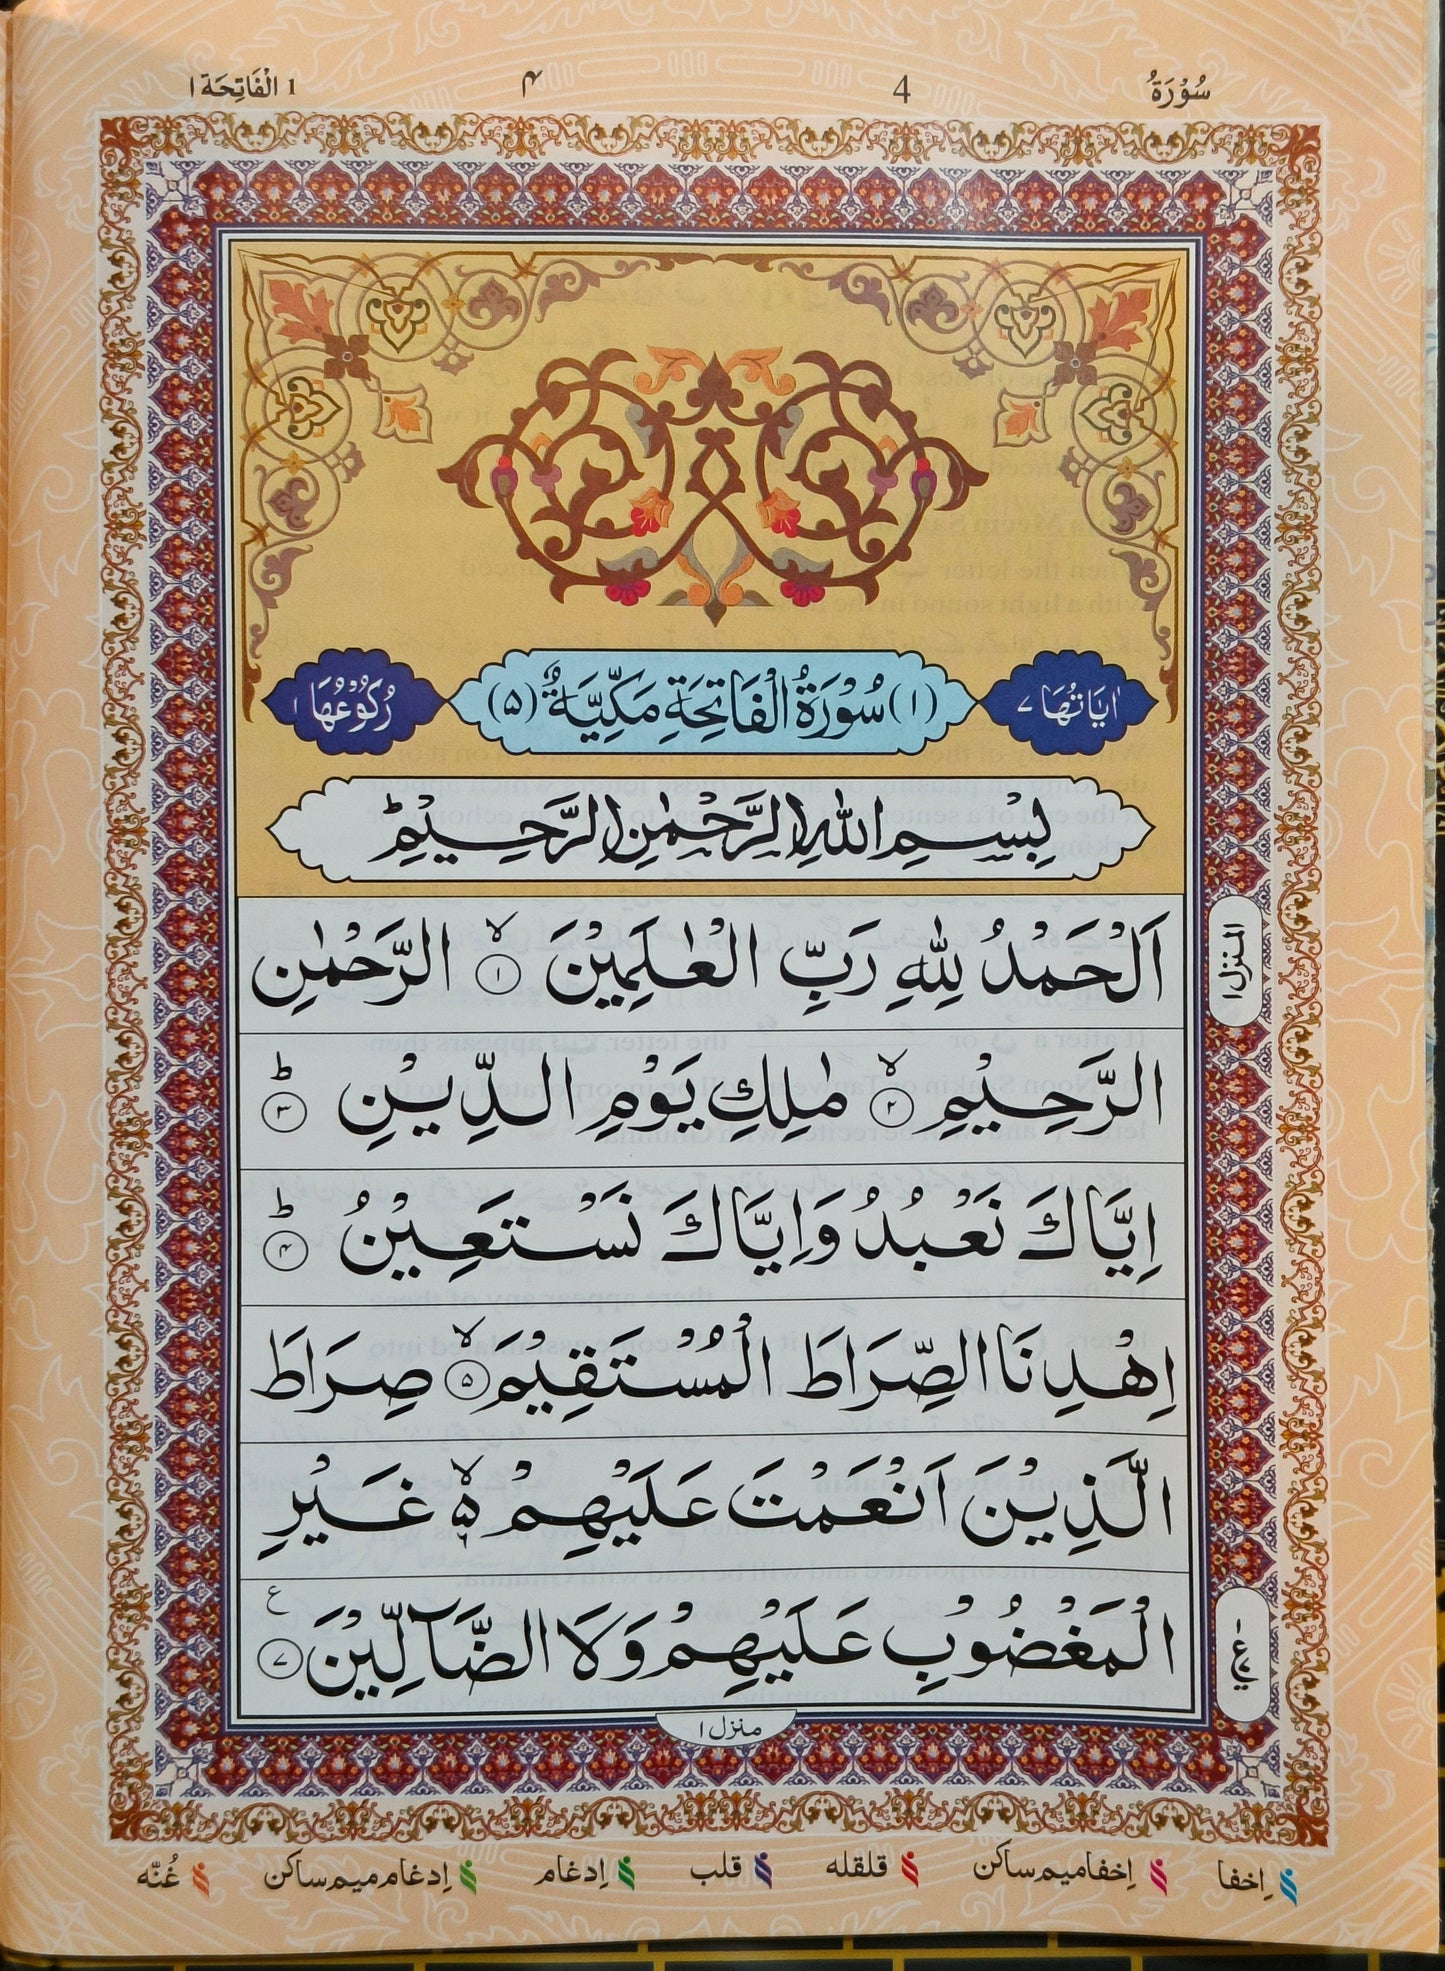 سُوْرَةُ 4 ۴ 1 الْفَاتِحَة ۱
اٰيَاتُهَا ۷ (۱) سُوْرَةُ الْفَاتِحَةِ مَكِّيَّةٌ (۵) رُكُوْعُهَا ۱
بِسْمِ اللّٰهِ الرَّحْمٰنِ الرَّحِيْمِؕ
اَلْحَمْدُ لِلّٰهِ رَبِّ الْعٰلَمِيْنَۙ ۱ الرَّحْمٰنِ
الرَّحِيْمِۙ ۲ مٰلِكِ يَوْمِ الدِّيْنِؕ ۳
اِيَّاكَ نَعْبُدُ وَاِيَّاكَ نَسْتَعِيْنُؕ ۴
اِهْدِنَا الصِّرَاطَ الْمُسْتَقِيْمَۙ ۵ صِرَاطَ
الَّذِيْنَ اَنْعَمْتَ عَلَيْهِمْ ۙ۵ ۶ غَيْرِ
الْمَغْضُوْبِ عَلَيْهِمْ وَلَا الضَّآلِّيْنَ ۷ ع
المنزل ۱
منزل ۱
اِخفا اِخفامیم ساکن قلقله قلب اِدغام اِدغام میم ساکن غُنّه